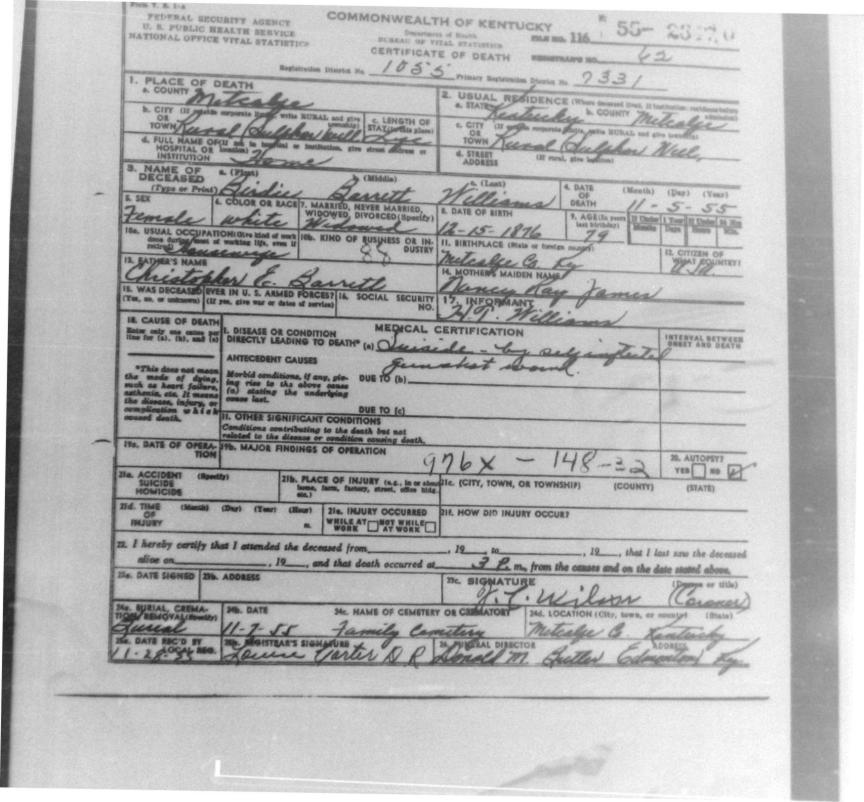 Form V. S. 1-A
FEDERAL SECURITY AGENCY
U. S. PUBLIC HEALTH SERVICE
NATIONAL OFFICE VITAL STATISTICS
COMMONWEALTH OF KENTUCKY
Department of Health
BUREAU OF VITAL STATISTICS
CERTIFICATE OF DEATH
FILE NO. 116 55-
REGISTRAR'S NO. 62
Registration District No. 1055 Primary Registration District No. 7331
1. PLACE OF DEATH
a. COUNTY Metcalfe
b. CITY (If outside corporate limits, write RURAL and give township) OR TOWN Rural Sulphur Well
c. LENGTH OF STAY (in this place) Life
d. FULL NAME OF (If not in hospital or institution, give street address or location) HOSPITAL OR INSTITUTION Home
2. USUAL RESIDENCE (Where deceased lived. If institution: residence before admission)
a. STATE Kentucky b. COUNTY Metcalfe
c. CITY (If outside corporate limits, write RURAL and give township) OR TOWN Rural Sulphur Well,
d. STREET ADDRESS (If rural, give location)
3. NAME OF DECEASED (Type or Print) a. (First) Birdie (Middle) Barrett c. (Last) Williams
4. DATE OF DEATH (Month) (Day) (Year) 11-5-55
5. SEX Female
6. COLOR OR RACE White
7. MARRIED, NEVER MARRIED, WIDOWED, DIVORCED (Specify) Widowed
8. DATE OF BIRTH 12-15-1876
9. AGE (In years last birthday) 79 If Under 1 Year Months Days If Under 24 Hrs Hours Min.
10a. USUAL OCCUPATION (Give kind of work done during most of working life, even if retired) Housewife
10b. KIND OF BUSINESS OR INDUSTRY 88
11. BIRTHPLACE (State or foreign country) Metcalfe Co. Ky
12. CITIZEN OF WHAT COUNTRY? USA
13. FATHER'S NAME Christopher E. Barrett
14. MOTHER'S MAIDEN NAME Nancy Kay James
15. WAS DECEASED EVER IN U. S. ARMED FORCES? (Yes, no, or unknown) (If yes, give war or dates of service)
16. SOCIAL SECURITY NO.
17. INFORMANT H.T. Williams
18. CAUSE OF DEATH
Enter only one cause per line for (a), (b), and (c)
MEDICAL CERTIFICATION
INTERVAL BETWEEN ONSET AND DEATH
I. DISEASE OR CONDITION DIRECTLY LEADING TO DEATH* (a) Suicide - by self inflicted
gunshot wound.
*This does not mean the mode of dying, such as heart failure, asthenia, etc. It means the disease, injury, or complication which caused death.
ANTECEDENT CAUSES
Morbid conditions, if any, giving rise to the above cause (a) stating the underlying cause last.
DUE TO (b)
DUE TO (c)
II. OTHER SIGNIFICANT CONDITIONS
Conditions contributing to the death but not related to the disease or condition causing death.
19a. DATE OF OPERATION
19b. MAJOR FINDINGS OF OPERATION
976X - 148-32
20. AUTOPSY? YES NO
21a. ACCIDENT SUICIDE HOMICIDE (Specify)
21b. PLACE OF INJURY (e.g., in or about home, farm, factory, street, office bldg. etc.)
21c. (CITY, TOWN, OR TOWNSHIP) (COUNTY) (STATE)
21d. TIME OF INJURY (Month) (Day) (Year) (Hour) m.
21e. INJURY OCCURRED WHILE AT WORK NOT WHILE AT WORK
21f. HOW DID INJURY OCCUR?
22. I hereby certify that I attended the deceased from , 19 , to , 19 , that I last saw the deceased
alive on , 19 , and that death occurred at 3 P. m., from the causes and on the date stated above.
23a. DATE SIGNED
23b. ADDRESS
23c. SIGNATURE (Degree or title) Wilson (Coroner)
24a. BURIAL, CREMATION, REMOVAL (Specify) Burial
24b. DATE 11-7-55
24c. NAME OF CEMETERY OR CREMATORY Family Cemetery
24d. LOCATION (City, town, or county) (State) Metcalfe Co. Kentucky
25a. DATE REC'D BY LOCAL REG. 11-28-55
25b. REGISTRAR'S SIGNATURE Louise Carter D R
26. FUNERAL DIRECTOR ADDRESS Donald M. Butler Edmonton, Ky.